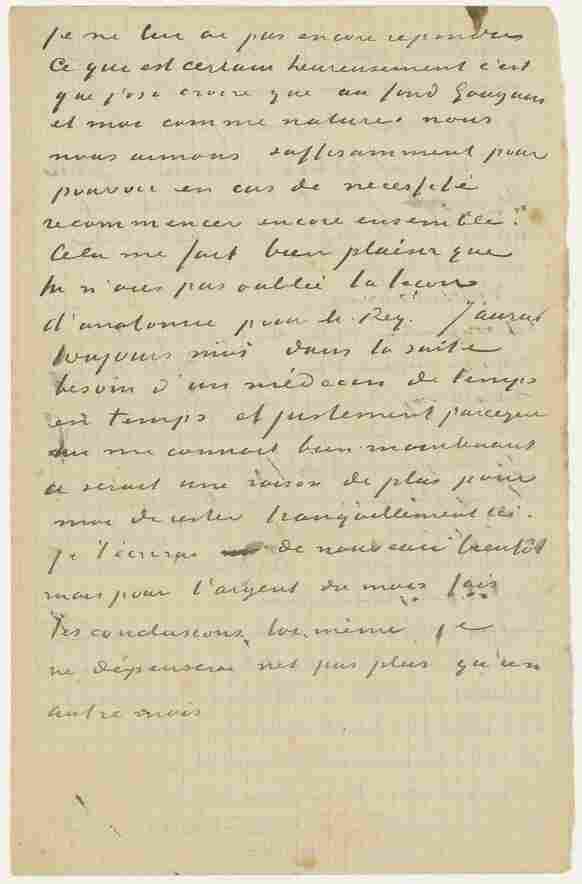 je ne lui ai pas encore répondu
Ce qui est certain heureusement c'est
que j'ose croire que au fond Gauguin
et moi comme nature nous
nous aimons suffisamment pour
pouvoir en cas de necessité
recommencer encore ensemble.
Cela me fait bien plaisir que
tu n'aies pas oublié la leçon
d'anatomie pour M. Rey. J'aurai
toujours moi dans la suite
besoin d'un médecin de temps
en temps et justement parceque
me connait bien maintenant
ce serait une raison de plus pour
moi de rester tranquillement ici.
Je t'écrirai de nouveau bientôt
mais pour l'argent du mois fais
tes conclusions toi-même je
ne dépenserai net pas plus qu'un
autre mois